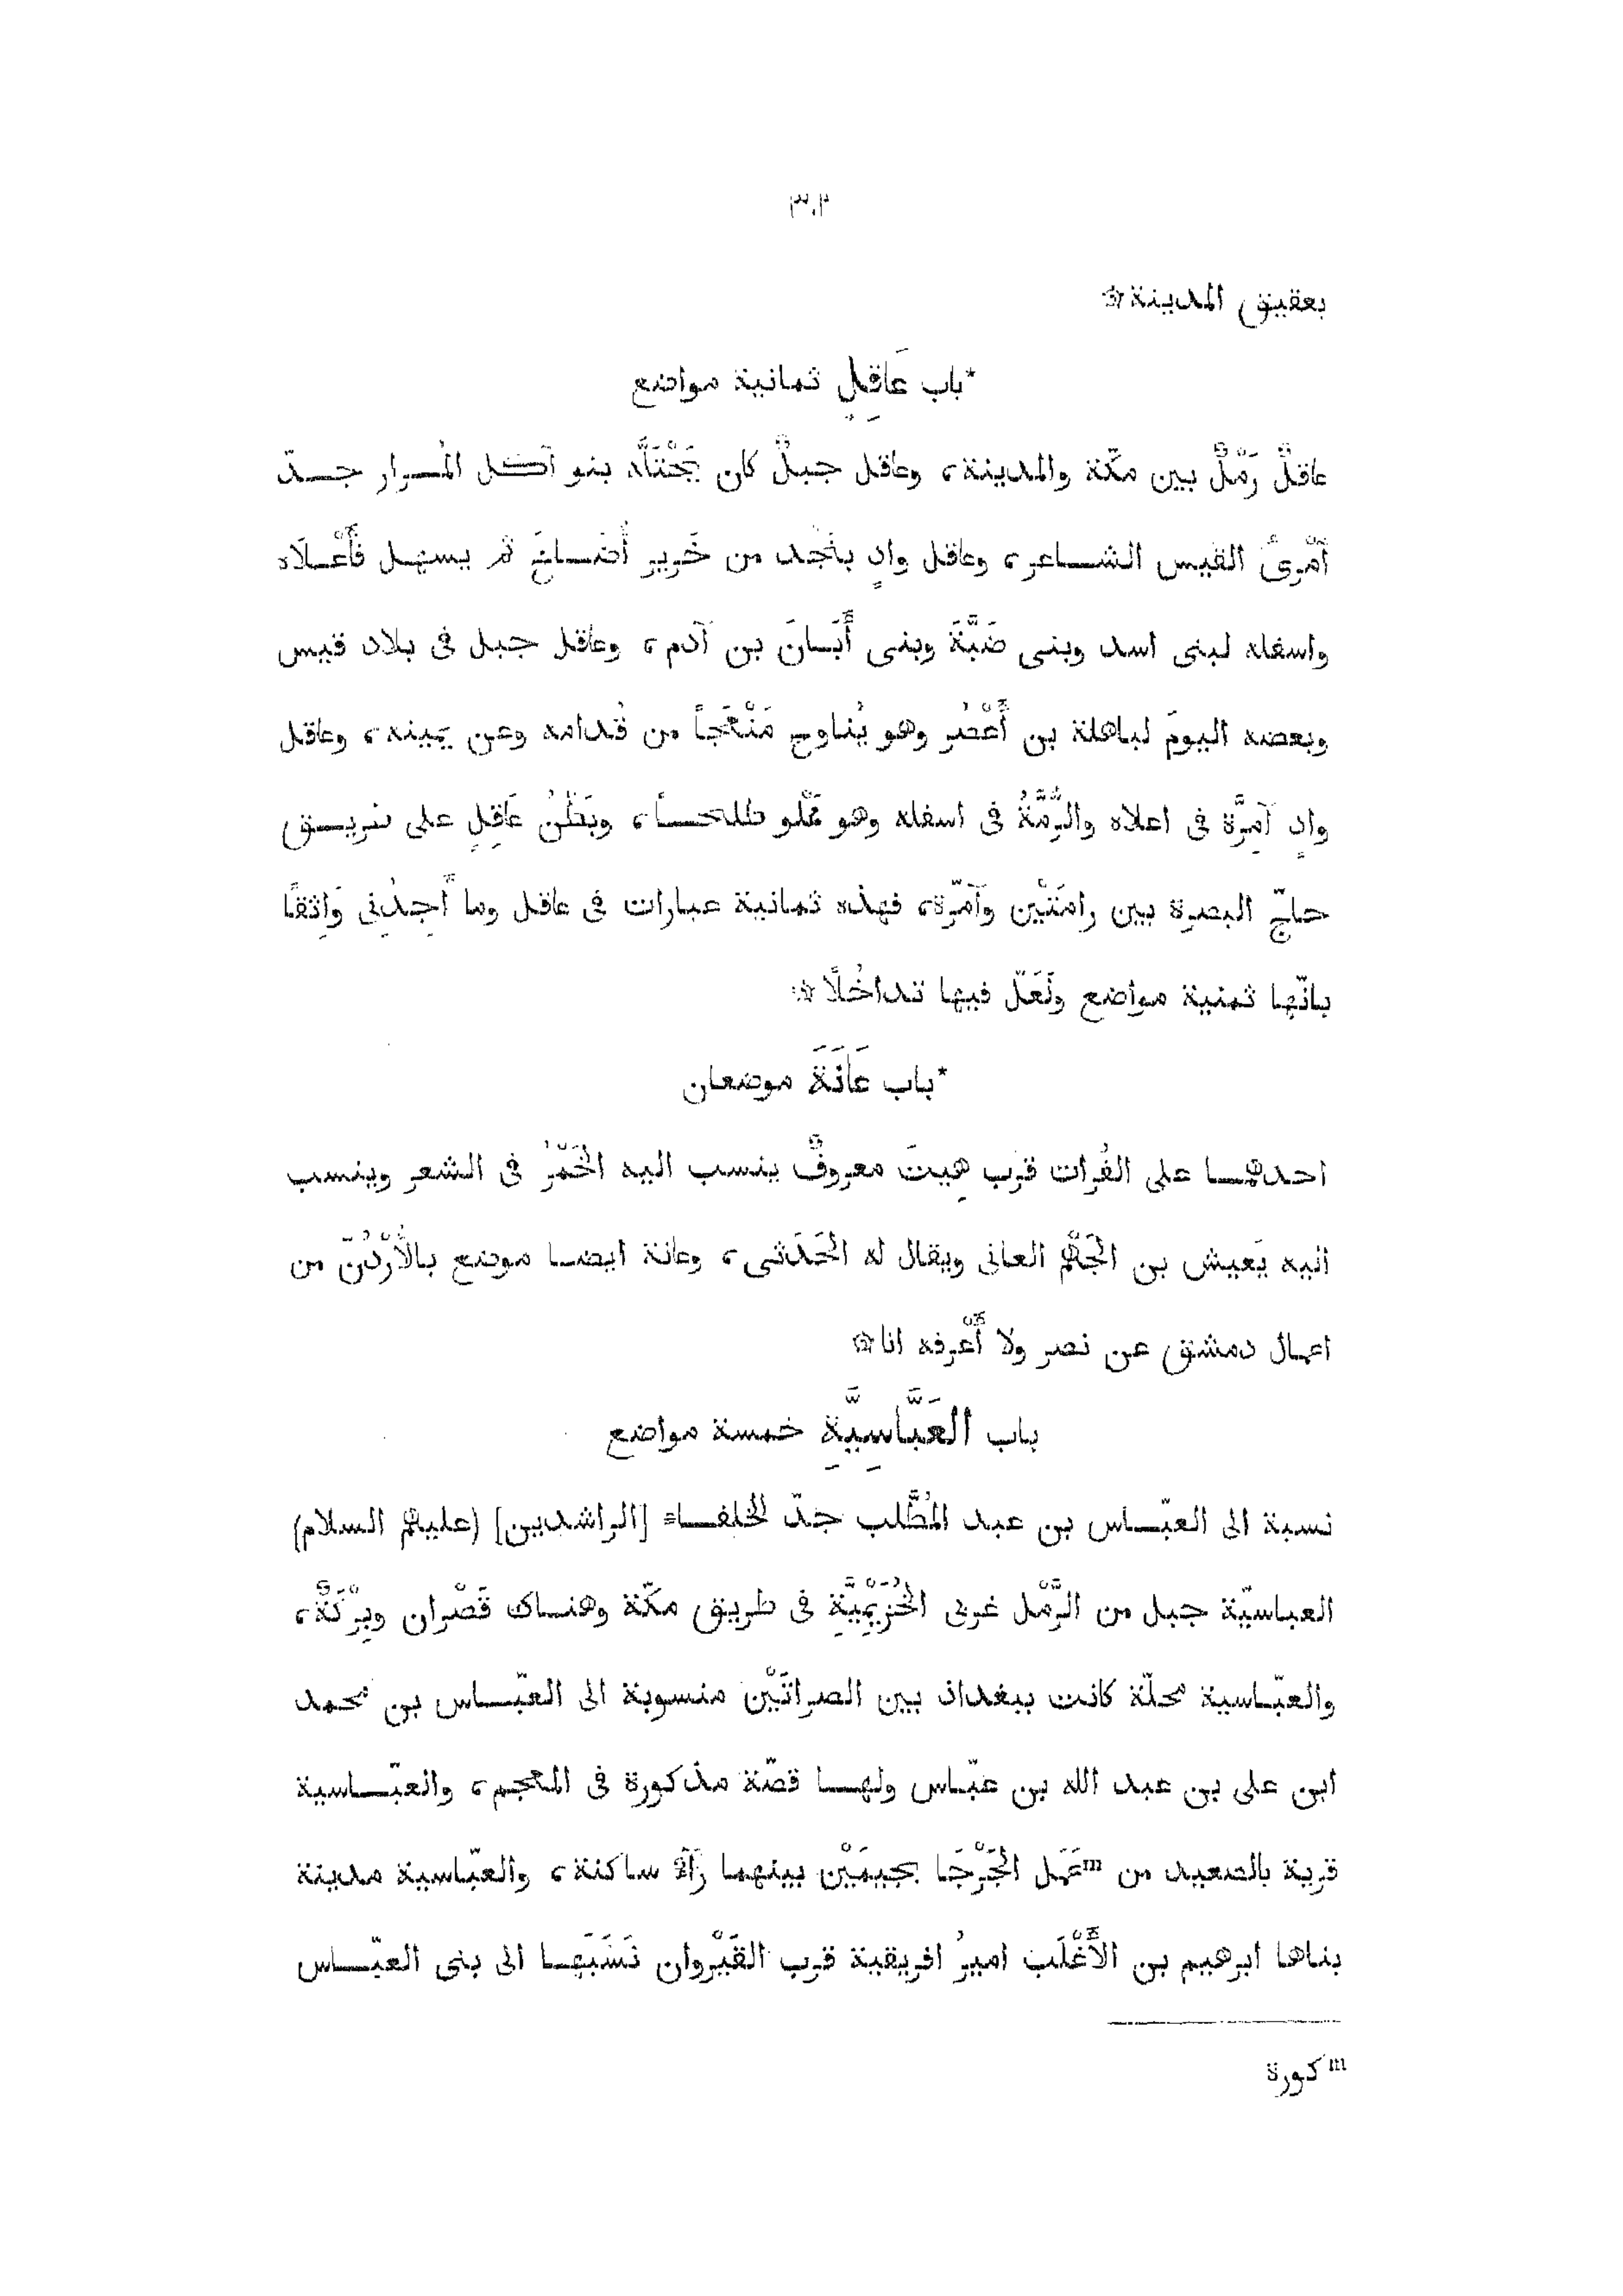 ٣٠٢
بعقيق المدينة ۞
*باب عَاقِلٍ ثمانية مواضع
عاقلٌ رَمْلٌ بين مكّة والمدينة، وعاقل جبلٌ كان يَحْتَلُّه بنو آكل المُرار جدّ
آمْرِئ القيس الشاعر، وعاقل وادٍ بنَجْد من خَرير أُضَاخَ ثم يسهل فأَعْلَاه
واسفله لبنى اسد وبنى ضَبَّةَ وبنى أَبَانَ بن آدم، وعاقل جبل فى بلاد قيس
وبعضه اليومَ لباهلة بن أَعْصُر وهو يُناوح مَنْعَجًا من قُدامه وعن يمينه، وعاقل
وادٍ آمِرَّة فى اعلاه والرُّمَّةُ فى اسفله وهو مملو طلحا، وبَطْنُ عَاقِلٍ على طريق
حاجّ البصرة بين رامَتَيْن وآمّرة، فهذه ثمانية عبارات فى عاقل وما أَجِدُنى وَاثِقًا
بانّها ثمنية مواضع ولَعَلّ فيها تداخُلًا ۞
*باب عَانَةَ موضعان
احدهما على الفُرات قرب هِيتَ معروفٌ ينسب اليه الخَمْرُ فى الشعر وينسب
اليه يَعيش بن الجَهْم العانى ويقال له الحَدَثى، وعانة ايضا موضع بالأُرْدُنّ من
اعمال دمشق عن نصر ولا أَعْرفه انا ۞
باب العَبَّاسِيَّةِ خمسة مواضع
نسبة الى العبّاس بن عبد المُطَّلب جدّ الخلفاء [الراشدين] (عليهم السلام)
العباسيّة جبل من الرَّمْل غربى الخُزَيْمِيَّةِ فى طريق مكّة وهناك قَصْران وبِرْكَةٌ،
والعبّاسية محلّة كانت ببغداد بين الصراتَيْن منسوبة الى العبّاس بن محمد
ابن على بن عبد الله بن عبّاس ولها قصّة مذكورة فى المعجم، والعبّاسية
قرية بالصعيد من mعَمَل الجَرْجَا بجيمَيْن بينهما رَاءٌ ساكنة، والعبّاسية مدينة
بناها ابرهيم بن الأَغْلَب اميرُ افريقية قرب القَيْروان نَسَبَها الى بنى العبّاس
m كورة